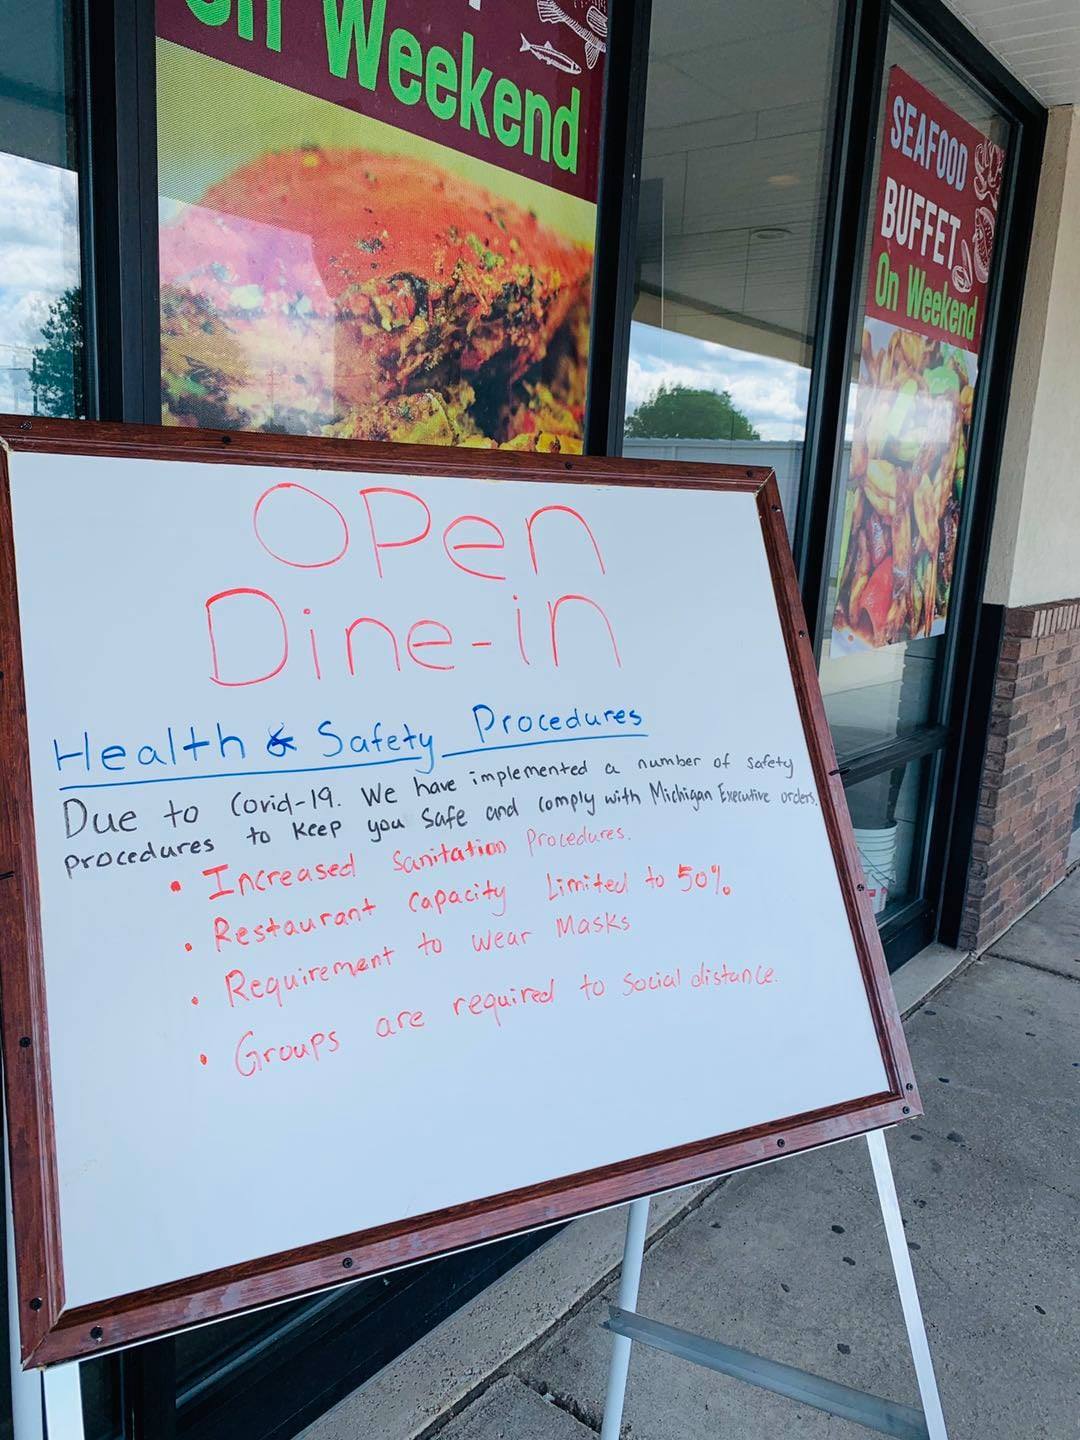 On Weekend
SEAFOOD
BUFFET
On Weekend
OPen
Dine-in
Health & Safety Procedures
Due to Covid-19. We have implemented a number of safety
procedures to keep you safe and comply with Michigan Executive orders.
• Increased Sanitation Procedures.
• Restaurant capacity Limited to 50%
• Requirement to wear Masks
• Groups are required to social distance.